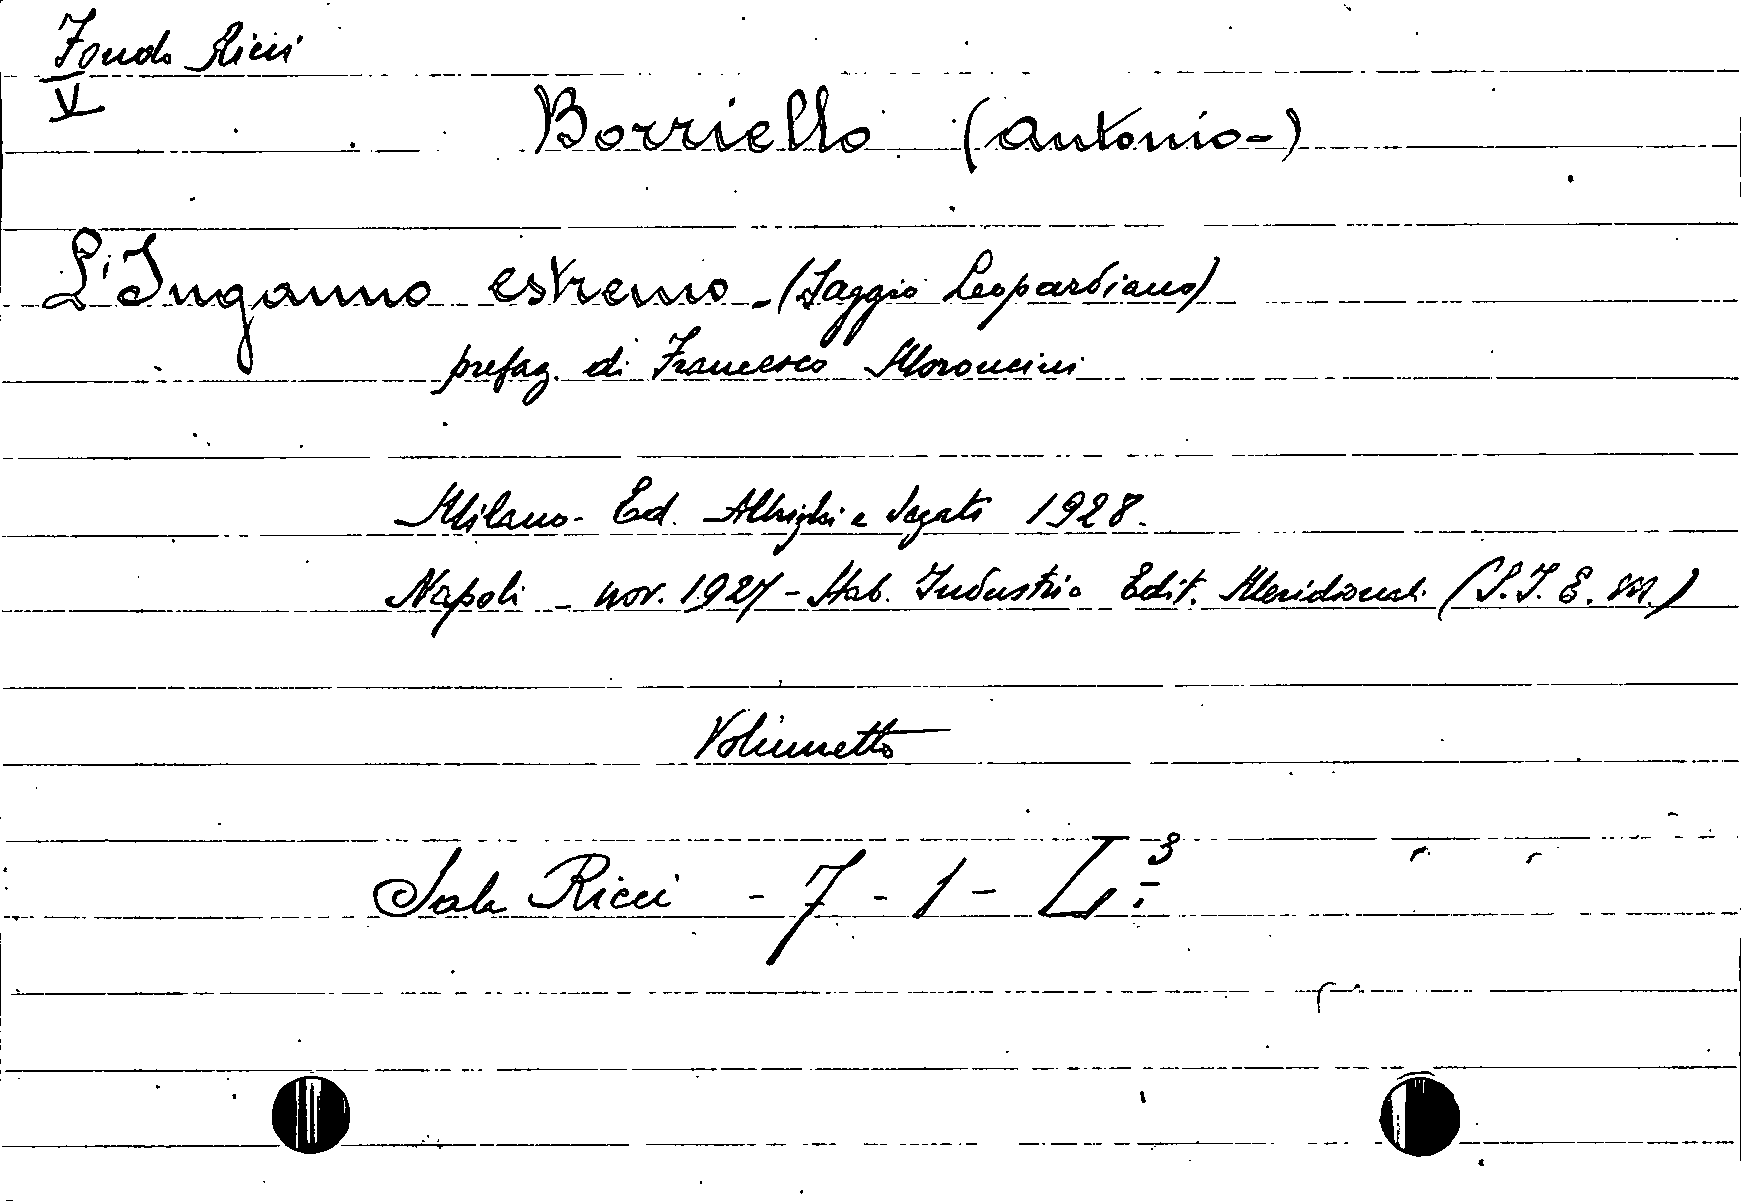 Fondo Ricci
V
Borriello (Antonio-)
L'Inganno estremo - (Saggio Leopardiano)
prefaz. di Francesco Moroncini
Milano - Ed. Albrighi e Segati 1928.
Napoli - nov. 1927 - Stab. Industrie Edit. Meridionali (S.I.E.M.)
Volumetto
Sala Ricci - 7 - 1 - L. 3